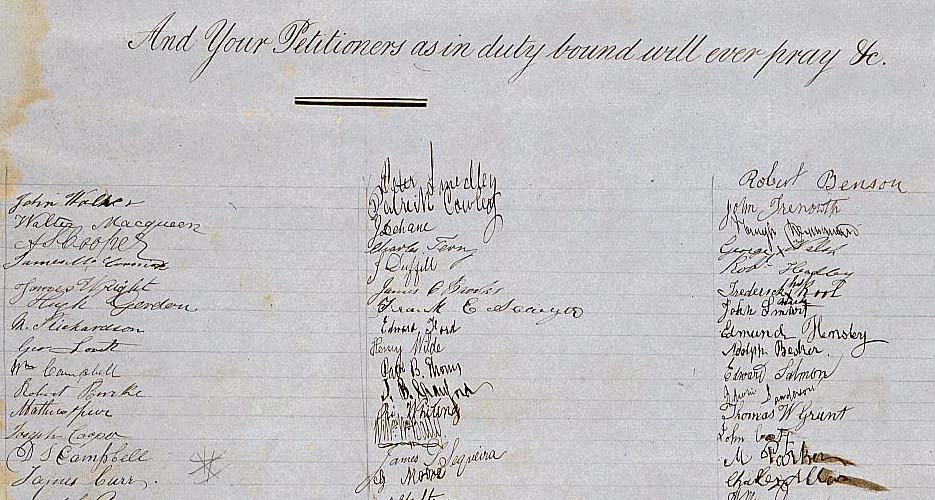 And Your Petitioners as in duty bound will ever pray &c.
John Walker
Walter Macqueen
A S Cooper
James McCormack
James Wright
Hugh Gordon
Richardson
Geo
Wm Campbell
Robert
Joseph
D S Campbell
James Carr.
Peter Smedley
Patrick Cowley
J Lehane
Charles Fern
J Duffill
James C Brooks
Frank E Sawyer
Edward Ford
Henry Wilde
B. Thomis
J. B. Crayford
Whiting
James T Sequeira
Moore
Robert Benson
John Trenowith
George x Welsh
Robt Headley
Frederick x Root
his
mark
John Smart
Edmund Hensley
Adolph Becker.
Edward Salmon
Edwin Sanderson
Thomas W Grunt
John
M Parker
Charles Allen